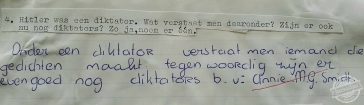 4. Hitler was een diktator. Wat verstaat men daaronder? Zijn er ook
nu nog diktators? Zo ja, noem er één.
Onder een diktator verstaat men iemand die
gedichten maakt tegenwoordig zijn er
evengoed nog diktators b.v: Annie M.G. Smidt.